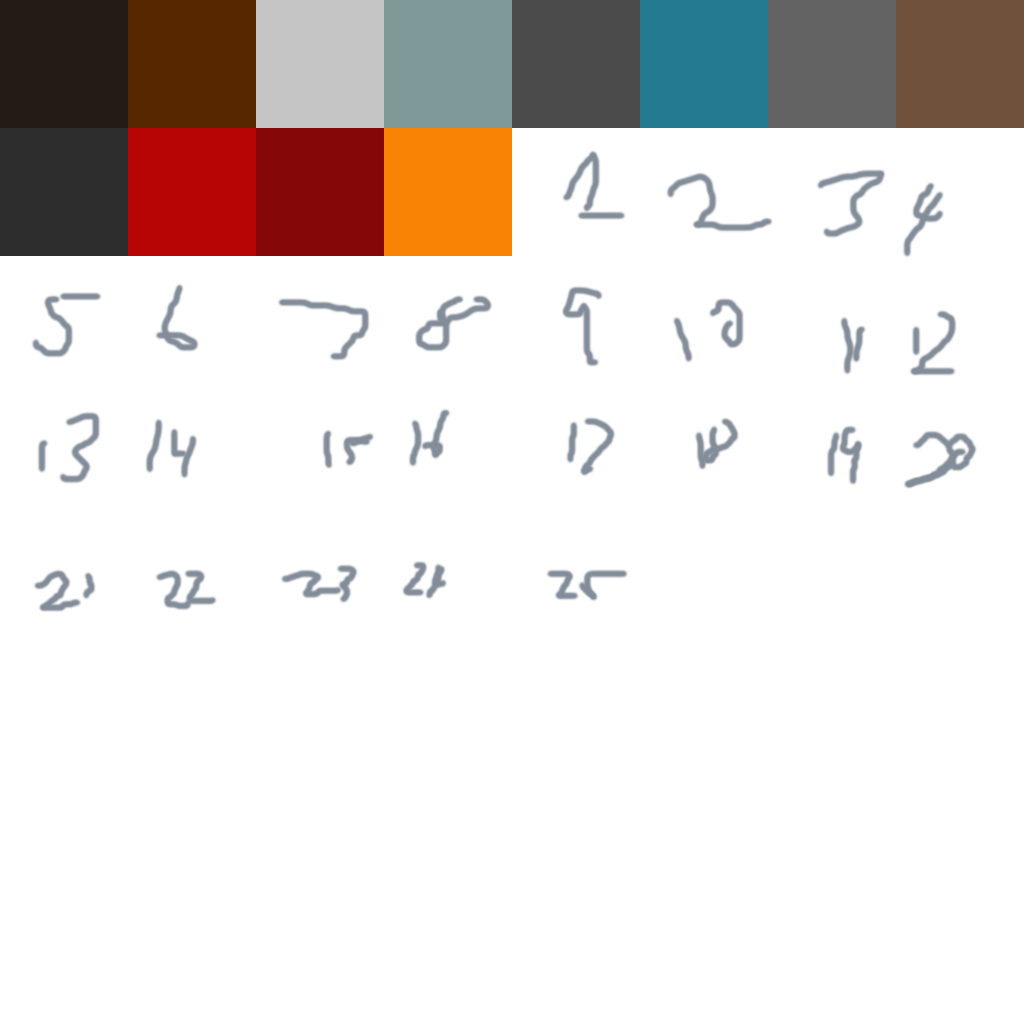 1 2 3 4
5 6 7 8 9 10 11 12
13 14 15 16 17 18 19 20
21 22 23 24 25